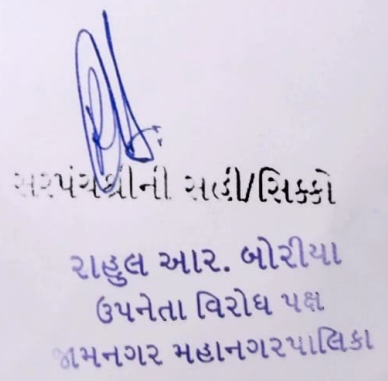 સરપંચશ્રીની સહી/સિક્કો
રાહુલ આર. બોરીયા
ઉપનેતા વિરોધ પક્ષ
જામનગર મહાનગરપાલિકા